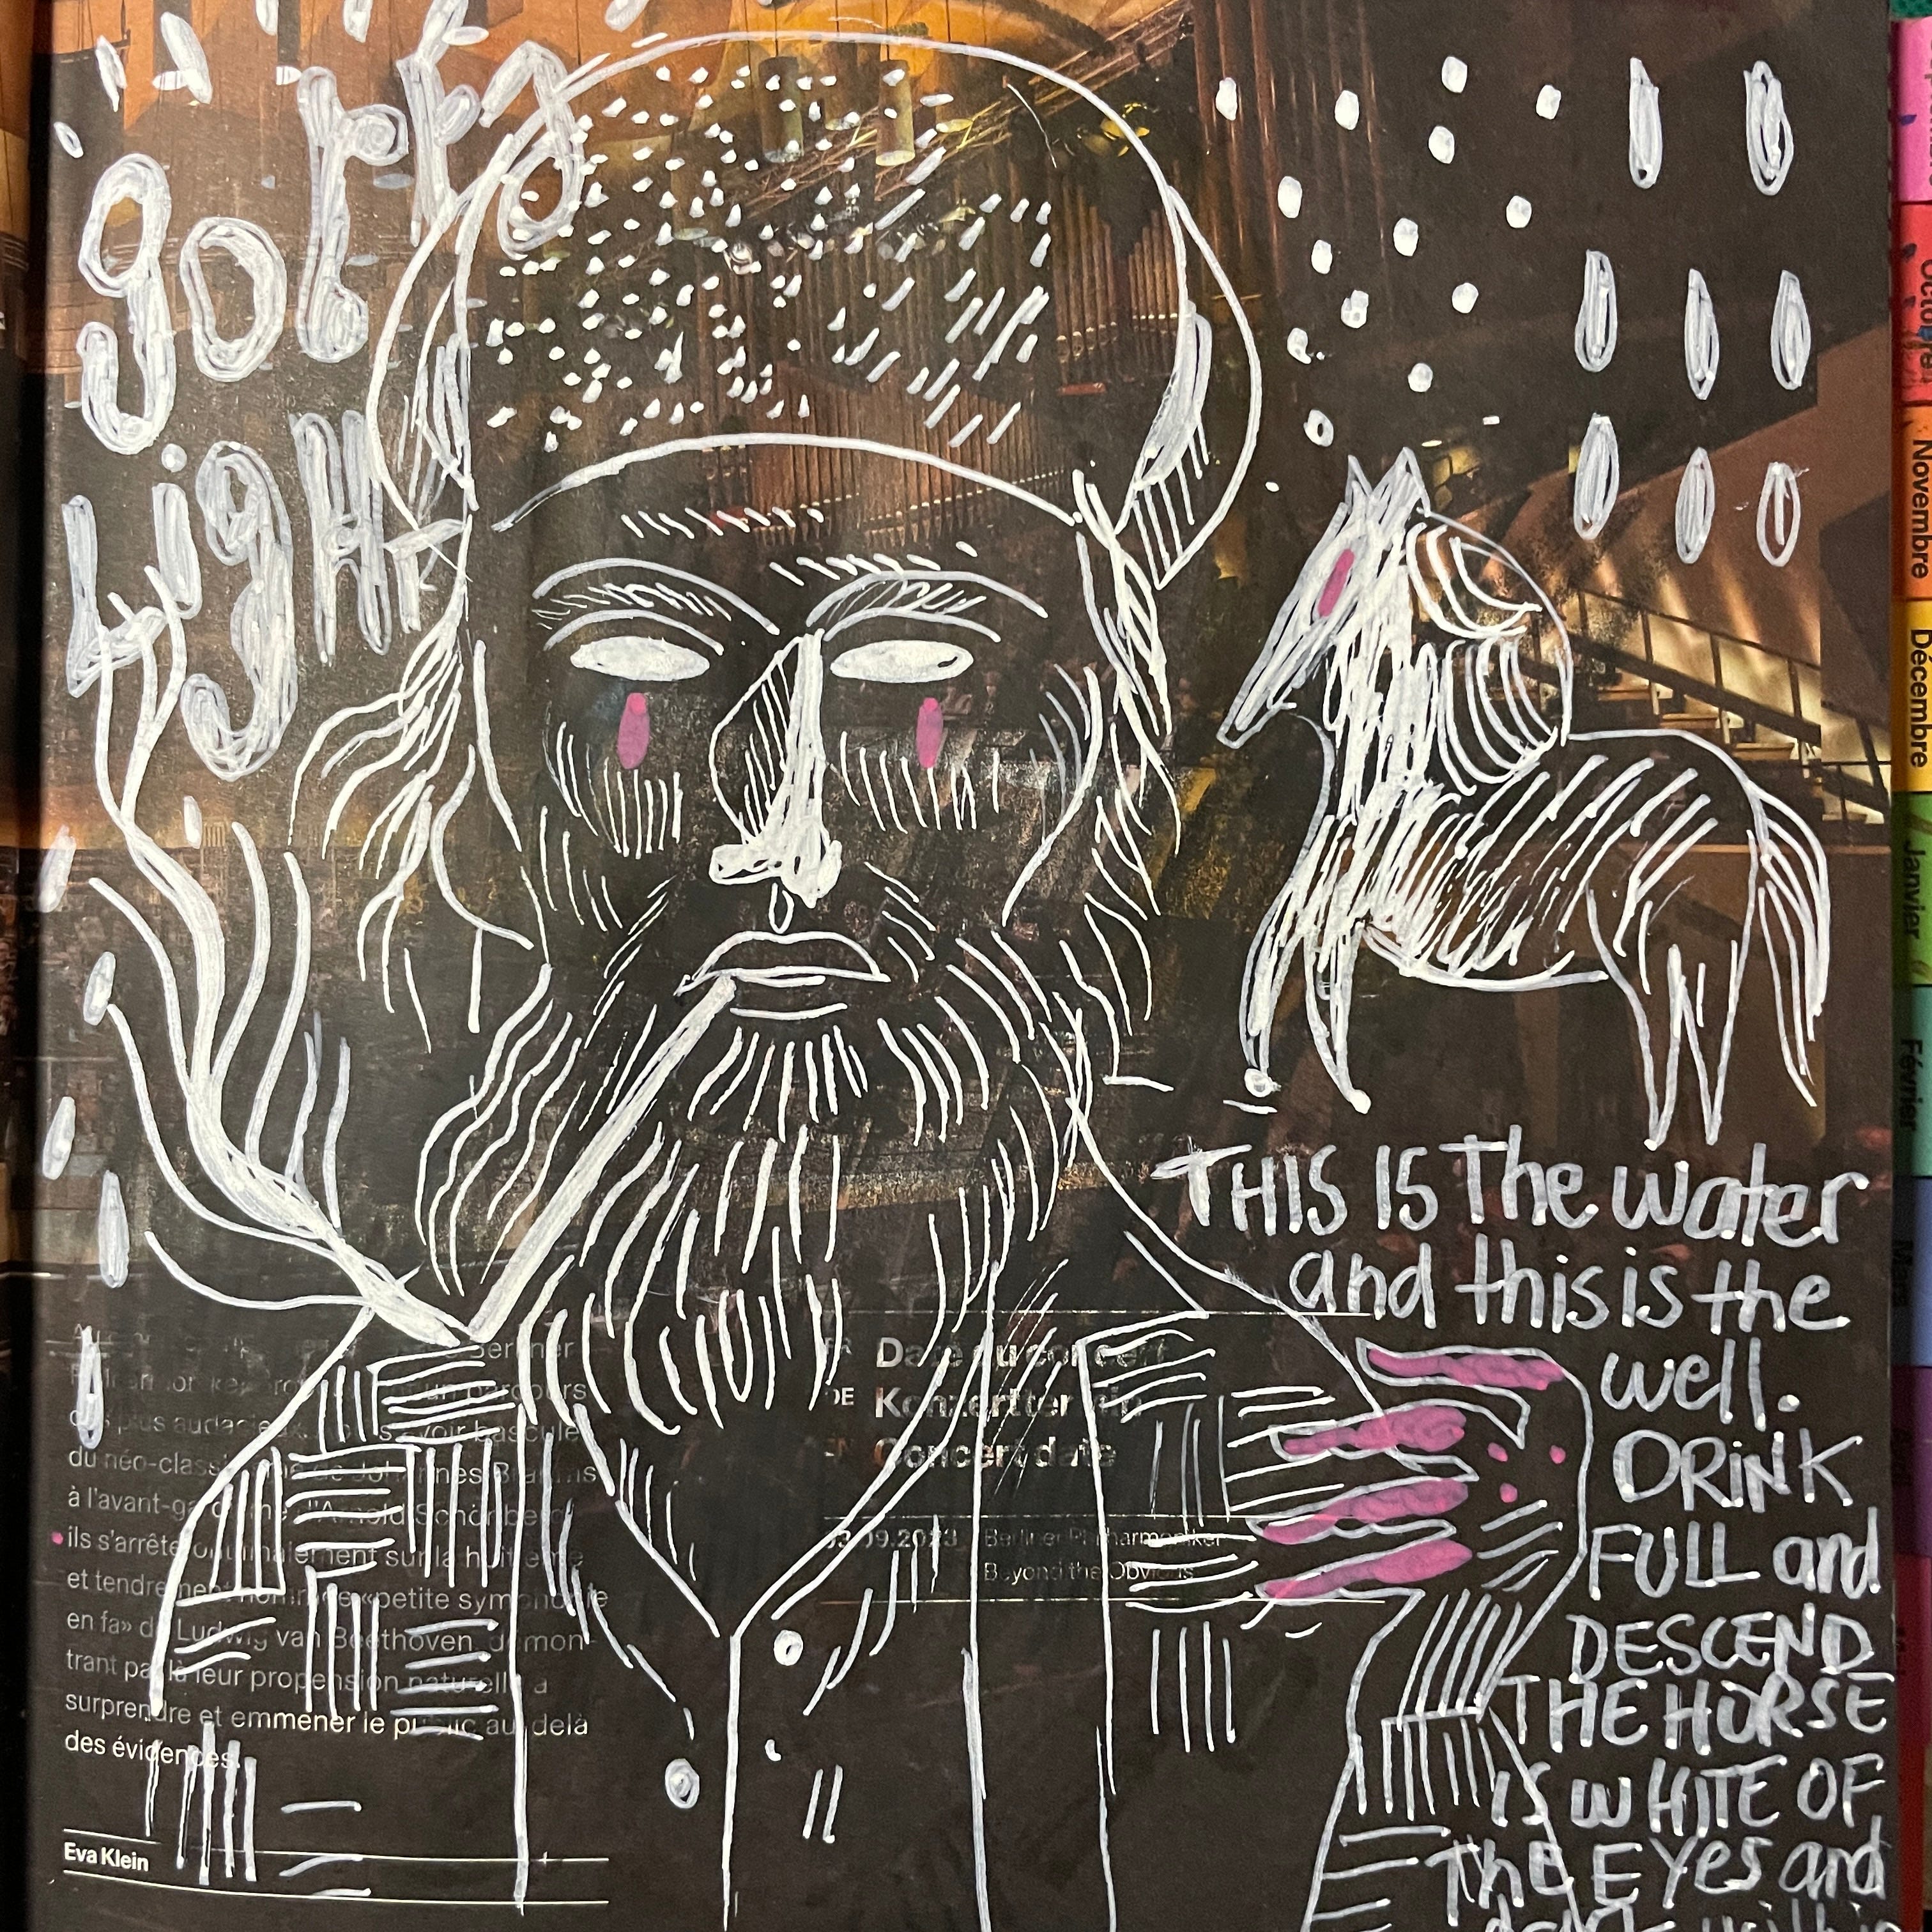 gotta
Light
THIS IS The water
and this is the
well.
DRiNK
FULL and
DESCEND
THE HORSE
is WHITE OF
ThE EYes and
Berliner
parcours
plus audacieux voir bascule
du néo-classicisme de Johannes Brahms
à l'avant-gardisme d'Arnold Schönberg
ils s'arrêteront finalement sur la huitième
et tendrement nommée «petite symphonie
en fa» de Ludwig van Beethoven, démon-
trant par là leur propension naturelle à
surprendre et emmener le public au-delà
des évidences.
Eva Klein
FR Date du concert
DE Konzerttermin
EN Concert date
03.09.2023 Berliner Philharmoniker
Beyond the Obvious
Octobre
Novembre
Décembre
Janvier
Février
Mars